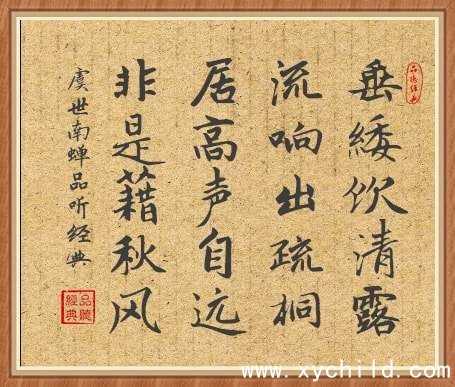 垂緌饮清露
流响出疏桐
居高声自远
非是藉秋风
虞世南蝉品听经典
品聽經典
www.xychild.com